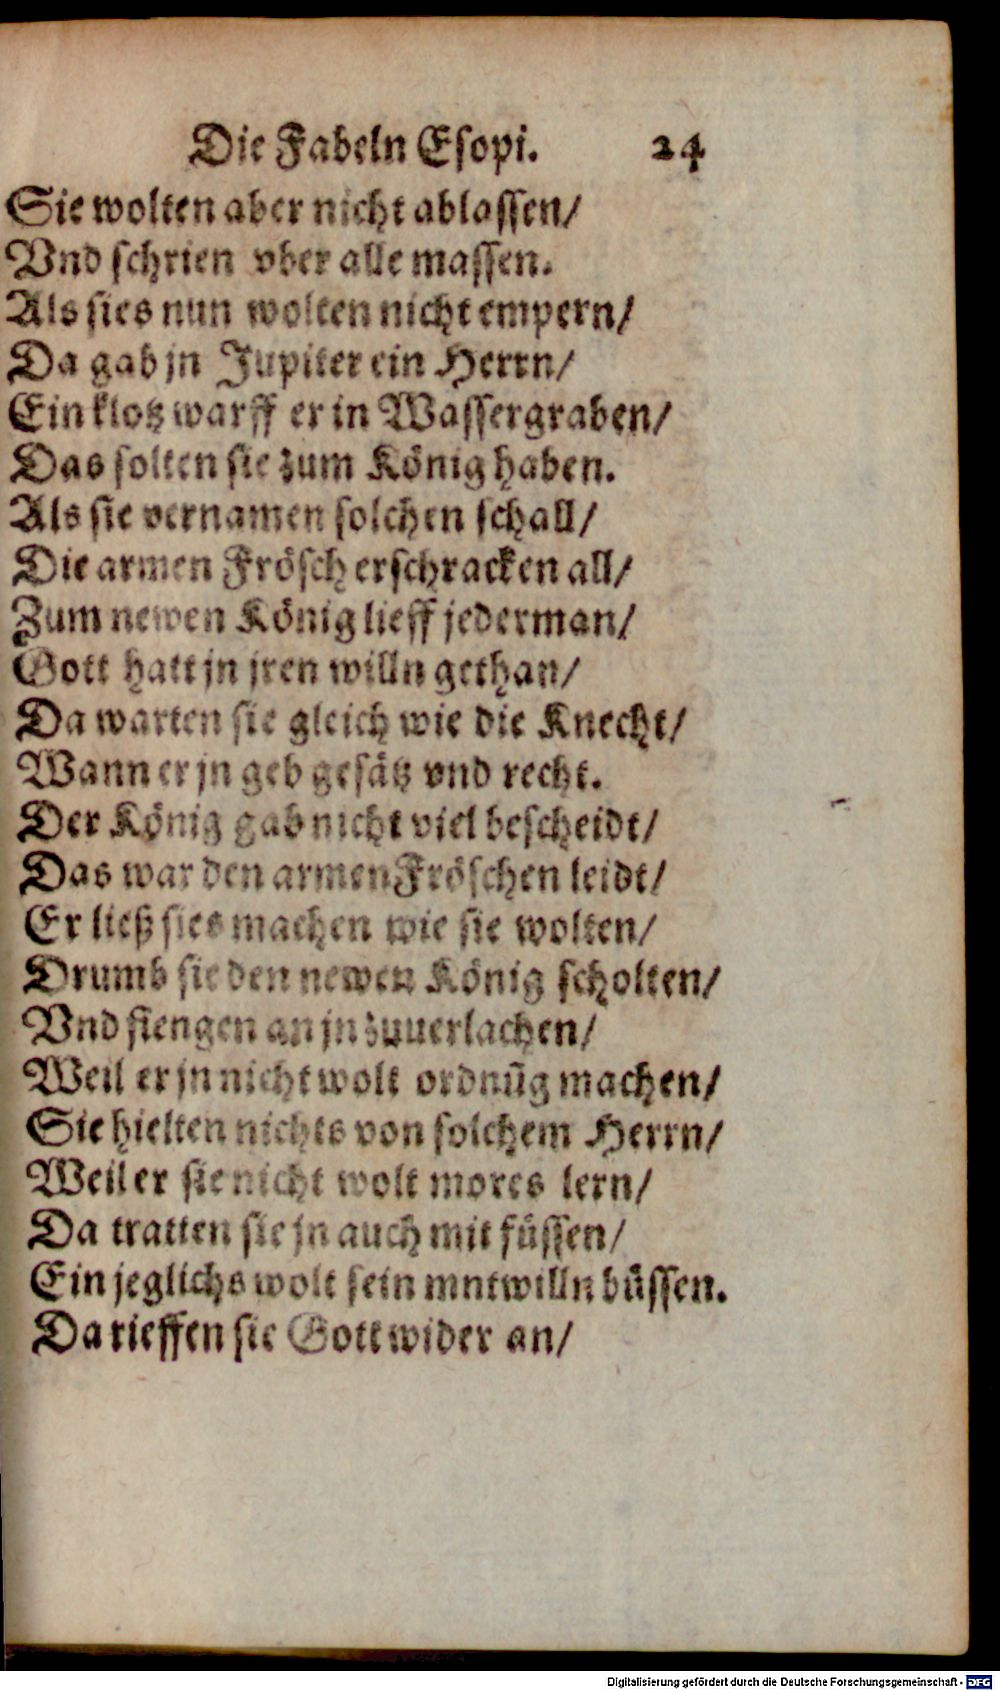 Die Fabeln Esopi. 24
Sie wolten aber nicht ablassen/
Vnd schrien vber alle massen.
Als sies nun wolten nicht empern/
Da gab jn Jupiter ein Herrn/
Ein klotz warff er in Wassergraben/
Das solten sie zum König haben.
Als sie vernamen solchen schall/
Die armen Frösch erschracken all/
Zum newen König lieff jederman/
Gott hatt jn jren willn gethan/
Da warten sie gleich wie die Knecht/
Wann er jn geb gesätz vnd recht.
Der König gab nicht viel bescheidt/
Das war den armen Fröschen leidt/
Er ließ sies machen wie sie wolten/
Drumb sie den newen König scholten/
Vnd fiengen an jn zuuerlachen/
Weil er jn nicht wolt ordnũg machen/
Sie hielten nichts von solchem Herrn/
Weil er sie nicht wolt mores lern/
Da tratten sie jn auch mit füssen/
Ein jeglichs wolt sein mntwilln büssen.
Da rieffen sie Gott wider an/
Digitalisierung gefördert durch die Deutsche Forschungsgemeinschaft - DFG